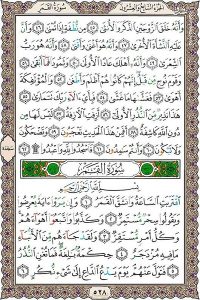 الجزء السابع والعشرون سورة القمر
وَأَنَّهُۥ خَلَقَ ٱلزَّوۡجَيۡنِ ٱلذَّكَرَ وَٱلۡأُنثَىٰ ٤٥ مِن نُّطۡفَةٍ إِذَا تُمۡنَىٰ ٤٦
وَأَنَّ عَلَيۡهِ ٱلنَّشۡأَةَ ٱلۡأُخۡرَىٰ ٤٧ وَأَنَّهُۥ هُوَ أَغۡنَىٰ وَأَقۡنَىٰ ٤٨ وَأَنَّهُۥ هُوَ رَبُّ
ٱلشِّعۡرَىٰ ٤٩ وَأَنَّهُۥٓ أَهۡلَكَ عَادًا ٱلۡأُولَىٰ ٥٠ وَثَمُودَاْ فَمَآ أَبۡقَىٰ ٥١
وَقَوۡمَ نُوحٖ مِّن قَبۡلُۖ إِنَّهُمۡ كَانُواْ هُمۡ أَظۡلَمَ وَأَطۡغَىٰ ٥٢ وَٱلۡمُؤۡتَفِكَةَ
أَهۡوَىٰ ٥٣ فَغَشَّىٰهَا مَا غَشَّىٰ ٥٤ فَبِأَيِّ ءَالَآءِ رَبِّكَ تَتَمَارَىٰ ٥٥ هَٰذَا
نَذِيرٞ مِّنَ ٱلنُّذُرِ ٱلۡأُولَىٰٓ ٥٦ أَزِفَتِ ٱلۡأٓزِفَةُ ٥٧ لَيۡسَ لَهَا مِن
دُونِ ٱللَّهِ كَاشِفَةٌ ٥٨ أَفَمِنۡ هَٰذَا ٱلۡحَدِيثِ تَعۡجَبُونَ ٥٩ وَتَضۡحَكُونَ
وَلَا تَبۡكُونَ ٦٠ وَأَنتُمۡ سَٰمِدُونَ ٦١ فَٱسۡجُدُواْۤ لِلَّهِۤ وَٱعۡبُدُواْ ۩ ٦٢
سورة القمر
بِسۡمِ ٱللَّهِ ٱلرَّحۡمَٰنِ ٱلرَّحِيمِ
ٱقۡتَرَبَتِ ٱلسَّاعَةُ وَٱنشَقَّ ٱلۡقَمَرُ ١ وَإِن يَرَوۡاْ ءَايَةٗ يُعۡرِضُواْ
وَيَقُولُواْ سِحۡرٞ مُّسۡتَمِرّٞ ٢ وَكَذَّبُواْ وَٱتَّبَعُوٓاْ أَهۡوَآءَهُمۡۚ
وَكُلُّ أَمۡرٖ مُّسۡتَقِرّٞ ٣ وَلَقَدۡ جَآءَهُم مِّنَ ٱلۡأَنۢبَآءِ
مَا فِيهِ مُزۡدَجَرٌ ٤ حِكۡمَةُۢ بَٰلِغَةٞۖ فَمَا تُغۡنِ ٱلنُّذُرُ ٥
فَتَوَلَّ عَنۡهُمۡۘ يَوۡمَ يَدۡعُ ٱلدَّاعِ إِلَىٰ شَيۡءٖ نُّكُرٍ ٦
٥٢٨